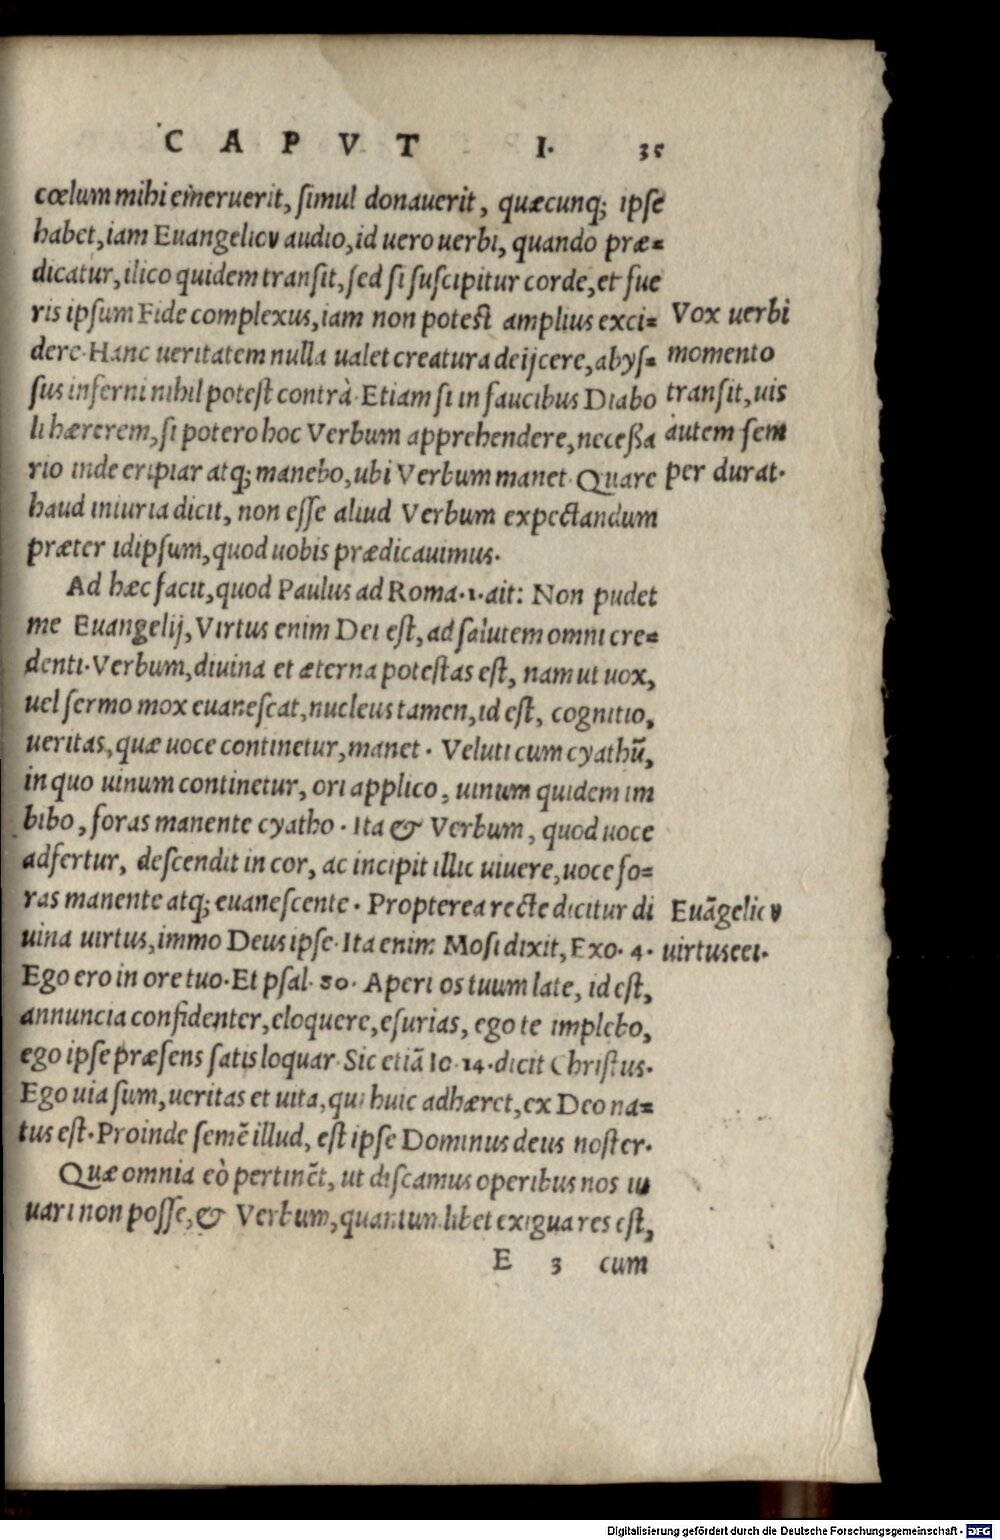 CAPVT I. 35
cœlum mihi emeruerit, simul donauerit, quæcunq; ipse
habet, iam Euangelicū audio, id uero uerbi, quando præ=
dicatur, ilico quidem transit, sed si suscipitur corde, et fue
ris ipsum Fide complexus, iam non potest amplius exci=
dere. Hanc ueritatem nulla ualet creatura deijcere, abys=
sus inferni nihil potest contrà. Etiam si in faucibus Diabo
li hærerem, si potero hoc Verbum apprehendere, neceßa
rio inde eripiar atq; manebo, ubi Verbum manet. Quare
haud iniuria dicit, non esse aliud Verbum expectandum
præter idipsum, quod uobis prædicauimus.
Vox uerbi
momento
transit, uis
autem sem
per durat.
Ad hæc facit, quod Paulus ad Roma.1.ait: Non pudet
me Euangelij, Virtus enim Dei est, ad salutem omni cre=
denti. Verbum, diuina et æterna potestas est, nam ut uox,
uel sermo mox euanescat, nucleus tamen, id est, cognitio,
ueritas, quæ uoce continetur, manet. Veluti cum cyathū,
in quo uinum continetur, ori applico, uinum quidem im
bibo, foras manente cyatho. Ita & Verbum, quod uoce
adfertur, descendit in cor, ac incipit illic uiuere, uoce fo=
ras manente atq; euanescente. Propterea recte dicitur di
uina uirtus, immo Deus ipse. Ita enim Mosi dixit, Exo. 4.
Ego ero in ore tuo. Et psal. 80. Aperi os tuum late, id est,
annuncia confidenter, eloquere, esurias, ego te implebo,
ego ipse præsens satis loquar. Sic etiā Io.14.dicit Christus.
Ego uia sum, ueritas et uita, qui huic adhæret, ex Deo na=
tus est. Proinde semē illud, est ipse Dominus deus noster.
Euāgelicū
uirtus
Quæ omnia eò pertinēt, ut discamus operibus nos iu
uari non posse, & Verbum, quantumlibet exigua res est,
E 3 cum
Digitalisierung gefördert durch die Deutsche Forschungsgemeinschaft - DFG